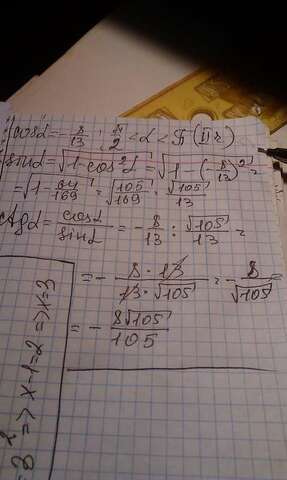 cosα = -8/13 ; π/2 < α < π (II ч)
sinα = √(1 - cos²α) = √(1 - (-8/13)²) =
= √(1 - 64/169) = √(105/169) = √105/13
ctgα = cosα/sinα = -8/13 : √105/13 =
= - (8 · 13)/(13 · √105) = - 8/√105 =
= - 8√105/105
=> x-1=2 => x=3